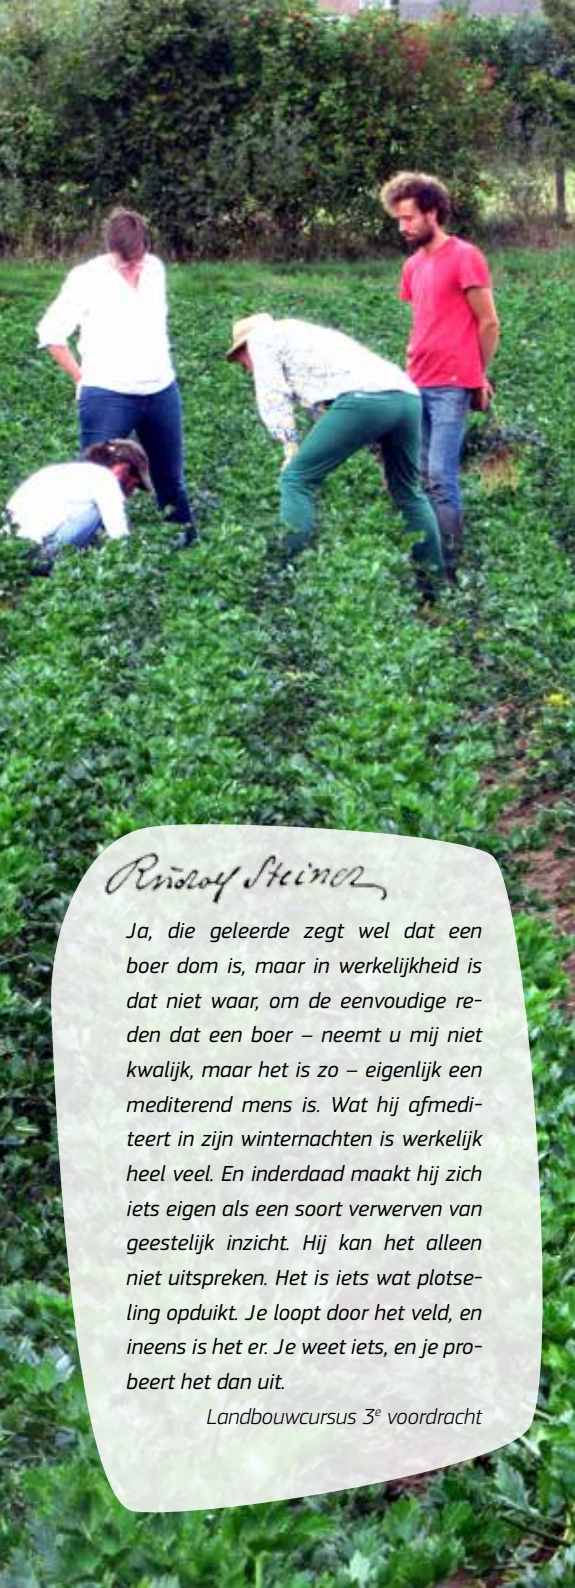 Rudolf Steiner
Ja, die geleerde zegt wel dat een
boer dom is, maar in werkelijkheid is
dat niet waar, om de eenvoudige re-
den dat een boer – neemt u mij niet
kwalijk, maar het is zo – eigenlijk een
mediterend mens is. Wat hij afmedi-
teert in zijn winternachten is werkelijk
heel veel. En inderdaad maakt hij zich
iets eigen als een soort verwerven van
geestelijk inzicht. Hij kan het alleen
niet uitspreken. Het is iets wat plotse-
ling opduikt. Je loopt door het veld, en
ineens is het er. Je weet iets, en je pro-
beert het dan uit.
Landbouwcursus 3ᵉ voordracht